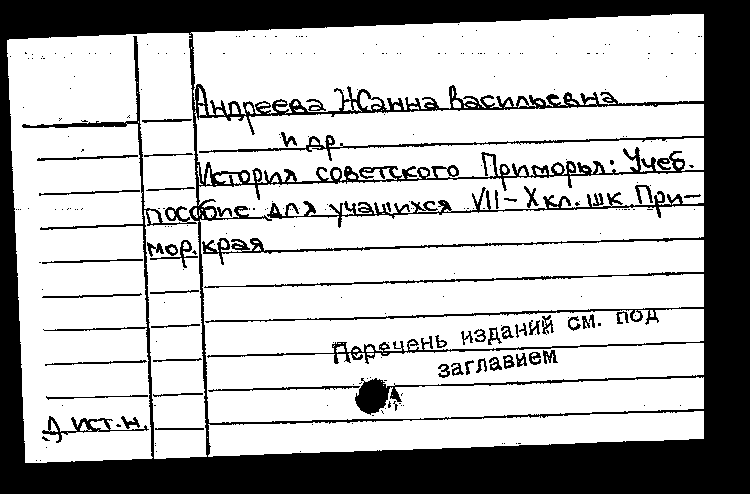 Андреева, Жанна Васильевна
и др.
История советского Приморья: Учеб.
пособие для учащихся VII-X кл. шк. При-
мор. края
Перечень изданий см. под
заглавием
Д. ист. н.